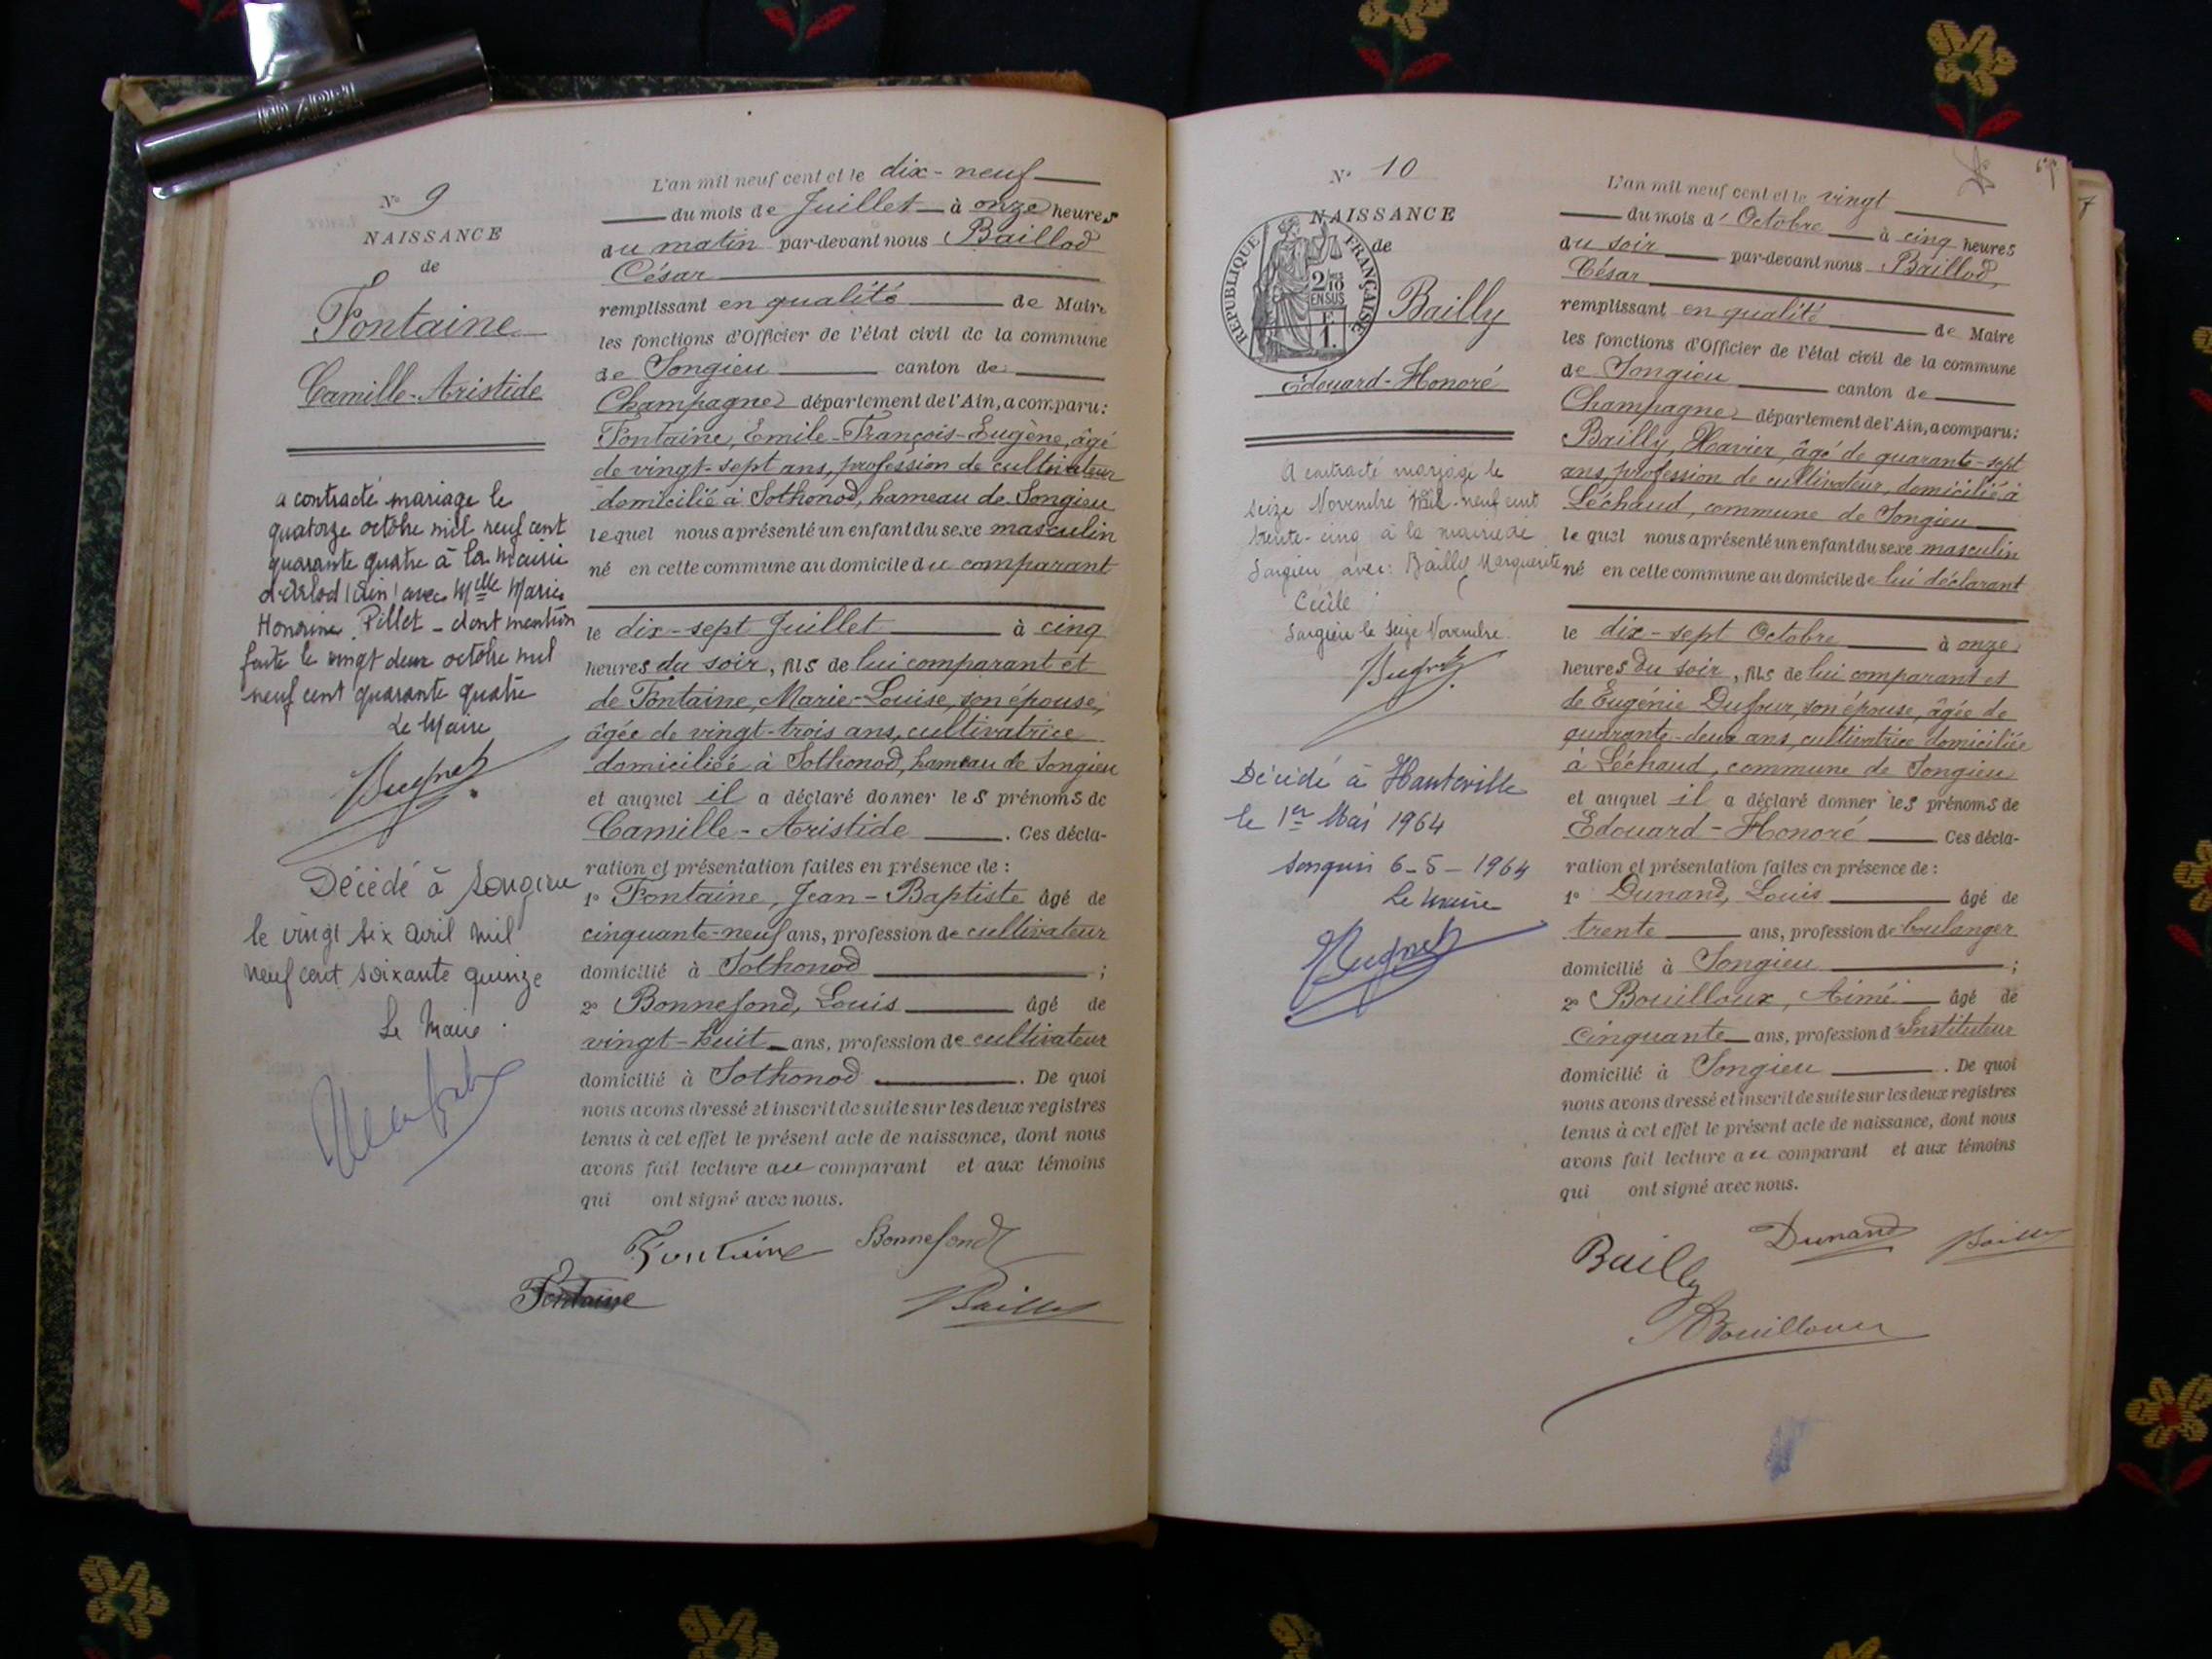 N° 9
NAISSANCE
de
Fontaine
Camille-Aristide
a contracté mariage le
quatorze octobre mil neuf cent
quarante quatre à la mairie
d'Arlod (Ain) avec Mlle Marie
Honorine Pillet _ dont mention
faite le vingt deux octobre mil
neuf cent quarante quatre
Le Maire
Décédé à Songieu
le vingt six avril mil
neuf cent soixante quinze
Le Maire
L'an mil neuf cent et le dix-neuf
du mois de Juillet à onze heures
du matin par-devant nous Baillod
César
remplissant en qualité de Maire
les fonctions d'Officier de l'état civil de la commune
de Songieu canton de
Champagne département de l'Ain, a comparu:
Fontaine, Emile-François-Eugène, âgé
de vingt-sept ans, profession de cultivateur
domicilié à Sothonod, hameau de Songieu
lequel nous a présenté un enfant du sexe masculin
né en cette commune au domicile du comparant
le dix-sept Juillet à cinq
heures du soir, fils de lui comparant et
de Fontaine, Marie-Louise, son épouse,
âgée de vingt-trois ans, cultivatrice
domiciliée à Sothonod, hameau de Songieu
et auquel il a déclaré donner les prénoms de
Camille-Aristide . Ces décla-
ration et présentation faites en présence de :
1° Fontaine, Jean-Baptiste âgé de
cinquante-neuf ans, profession de cultivateur
domicilié à Sothonod ;
2° Bonnefond, Louis âgé de
vingt-huit ans, profession de cultivateur
domicilié à Sothonod . De quoi
nous avons dressé et inscrit de suite sur les deux registres
tenus à cet effet le présent acte de naissance, dont nous
avons fait lecture au comparant et aux témoins
qui ont signé avec nous.
Fontaine Bonnefond
Fontaine Baillod
N° 10
NAISSANCE
de
REPUBLIQUE FRANÇAISE
2/10
EN SUS
1F
Bailly
Edouard-Honoré
A contracté mariage le
seize Novembre mil-neuf cent
trente-cinq à la mairie de
Songieu avec: Bailly Marguerite
Cécile
Songieu le seize Novembre.
Décédé à Hauteville
le 1er Mai 1964
Songieu 6-5-1964
Le Maire
L'an mil neuf cent et le vingt
du mois d'Octobre à cinq heures
du soir par-devant nous Baillod,
César
remplissant en qualité de Maire
les fonctions d'Officier de l'état civil de la commune
de Songieu canton de
Champagne département de l'Ain, a comparu:
Bailly, Xavier, âgé de quarante-sept
ans, profession de cultivateur, domicilié à
Léchaud, commune de Songieu
lequel nous a présenté un enfant du sexe masculin
né en cette commune au domicile de lui déclarant
le dix-sept Octobre à onze
heures du soir, fils de lui comparant et
de Eugénie Dufour, son épouse, âgée de
quarante-deux ans, cultivatrice domiciliée
à Léchaud, commune de Songieu
et auquel il a déclaré donner les prénoms de
Edouard-Honoré Ces décla-
ration et présentation faites en présence de :
1° Dunand, Louis âgé de
trente ans, profession de boulanger
domicilié à Songieu ;
2° Bouilloux, Aimé âgé de
Cinquante ans, profession d'Instituteur
domicilié à Songieu . De quoi
nous avons dressé et inscrit de suite sur les deux registres
tenus à cet effet le présent acte de naissance, dont nous
avons fait lecture au comparant et aux témoins
qui ont signé avec nous.
Bailly Dunand Baillod
Bouilloux